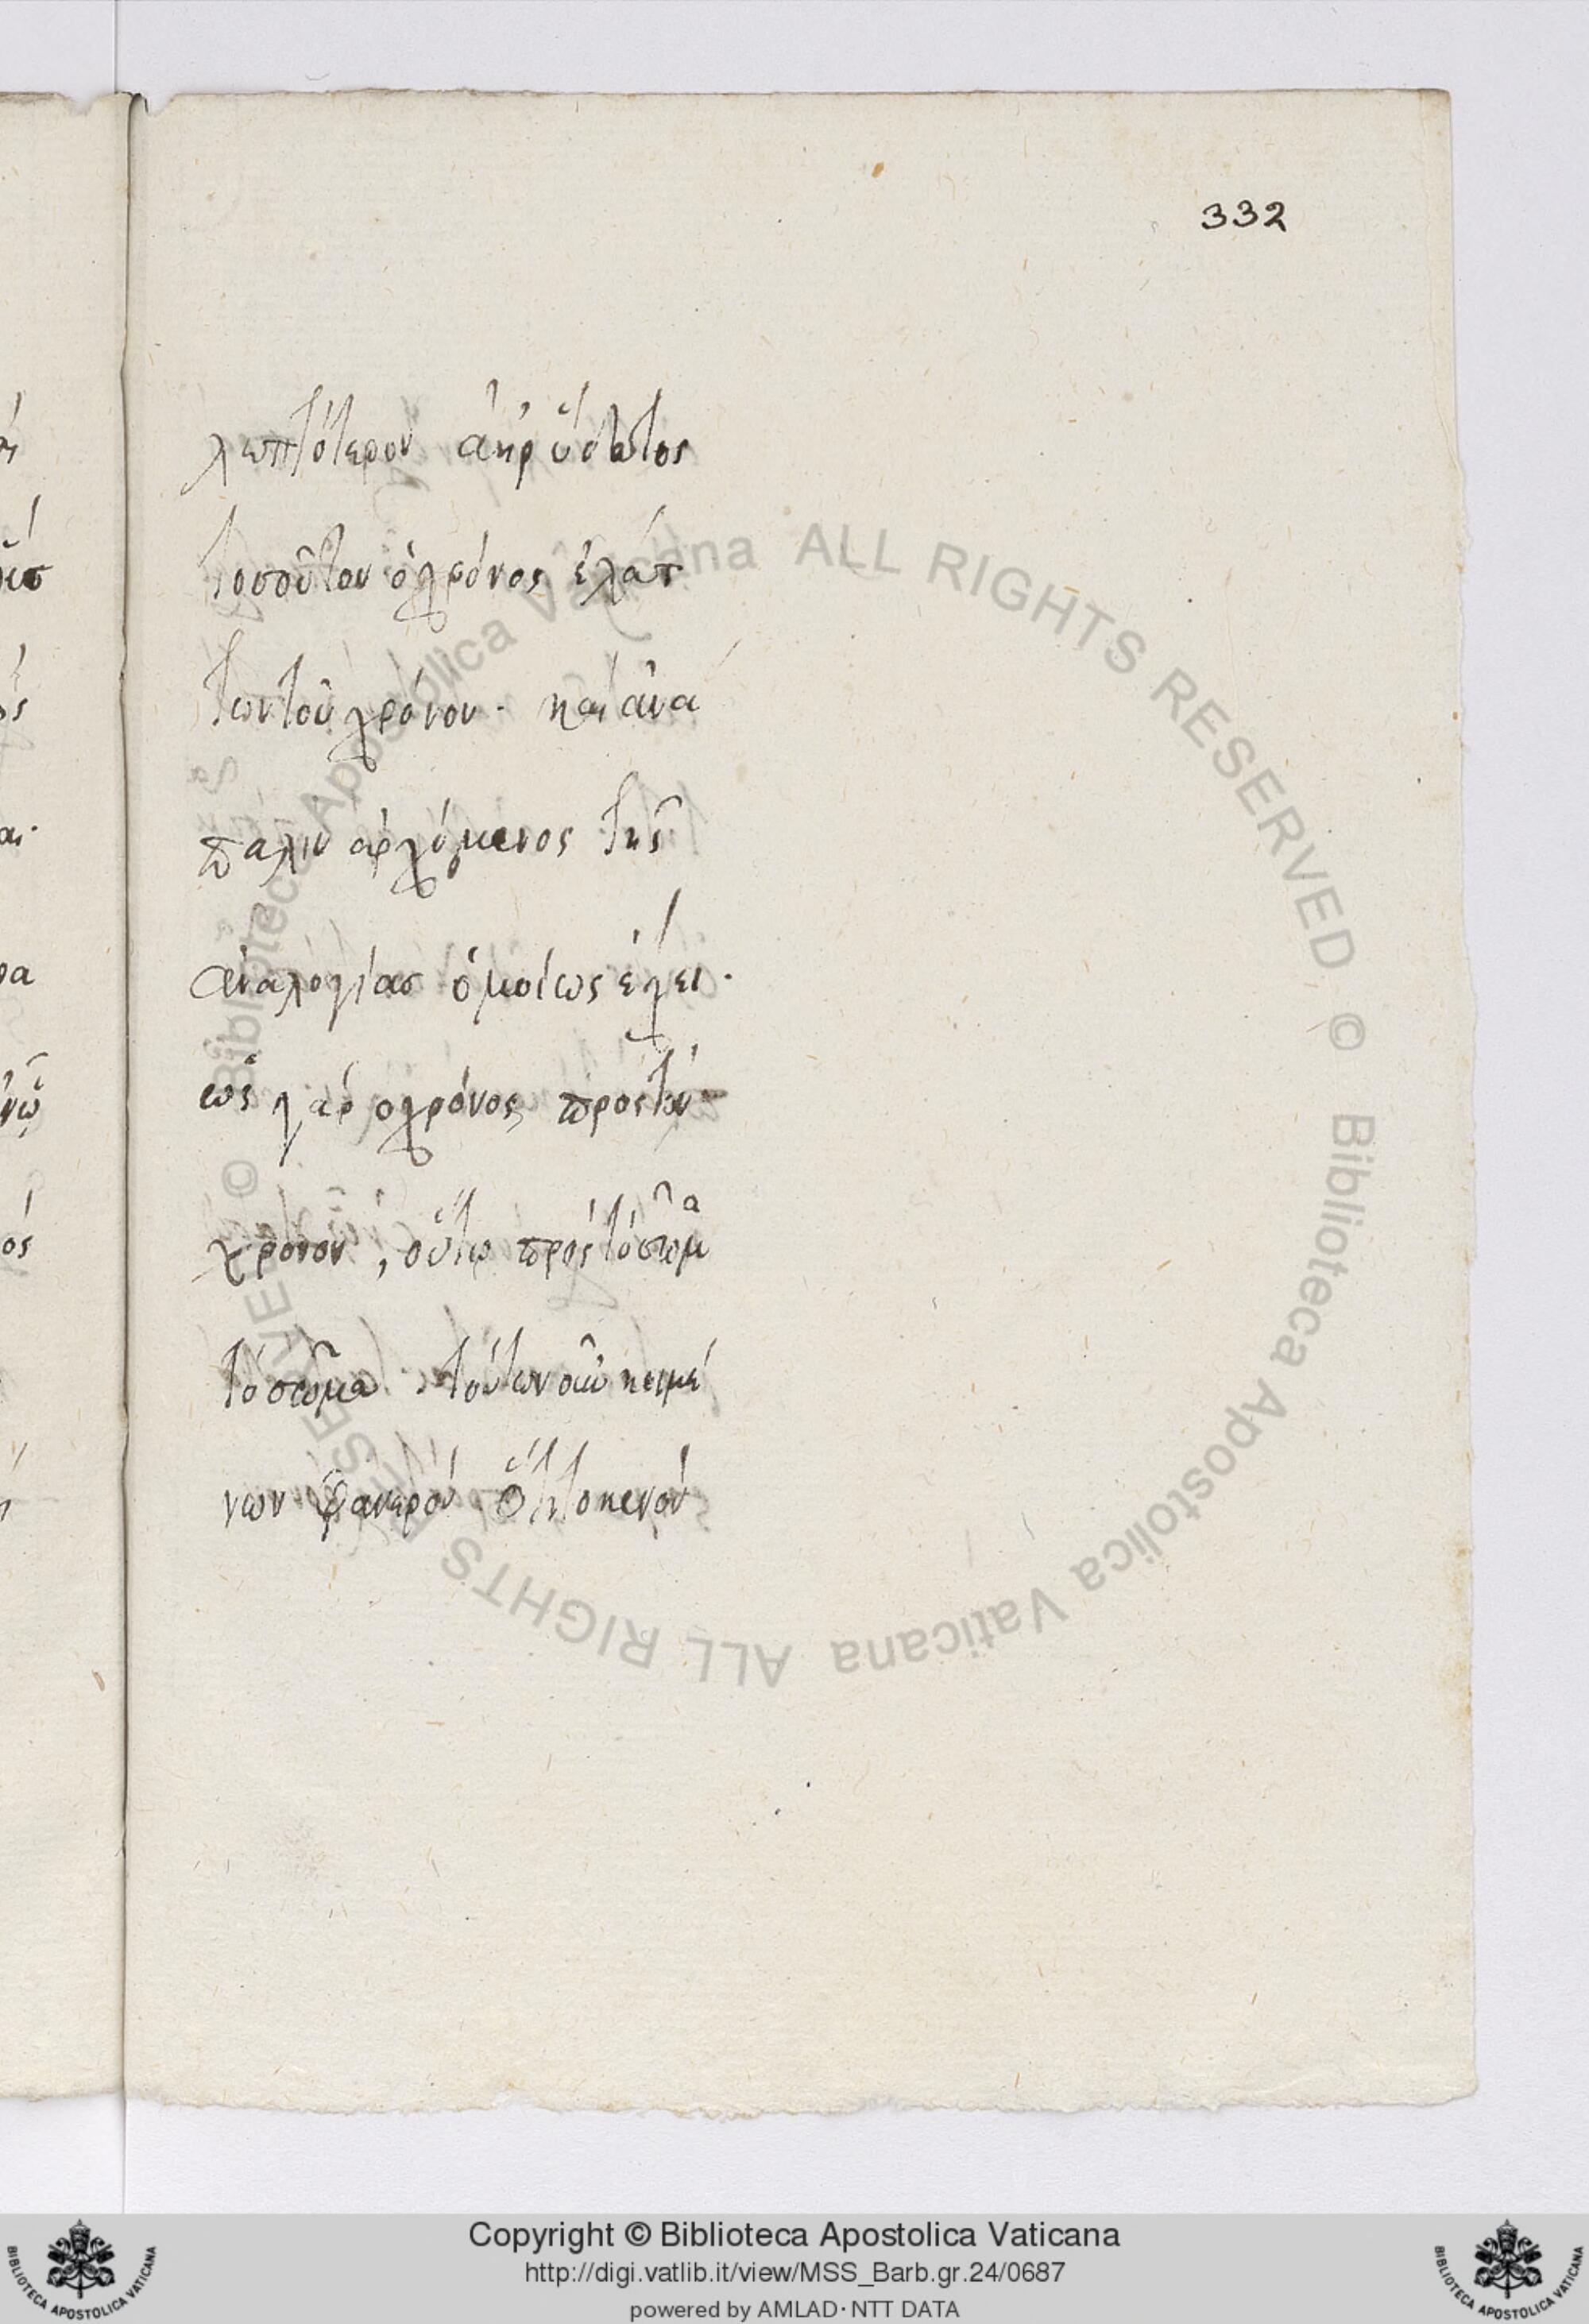 332
λεπτότερον ἀὴρ ὕδατος
τοσοῦτον ὁ χρόνος ἐλάτ
των τοῦ χρόνου· καὶ ἀνά
παλιν ἀρχόμενος τῆς
ἀναλογίας ὁμοίως ἔχει·
ὡς γὰρ ὁ χρόνος πρὸς τὸν
χρόνον, οὕτω πρὸς τὸ σῶμα
τὸ σῶμα. τούτων οὖν κειμέ
νων φανερὸν ὅτι τὸ κενὸν
© Biblioteca Apostolica Vaticana ALL RIGHTS RESERVED © Biblioteca Apostolica Vaticana ALL RIGHTS RESERVED
Copyright © Biblioteca Apostolica Vaticana
http://digi.vatlib.it/view/MSS_Barb.gr.24/0687
powered by AMLAD·NTT DATA
BIBLIOTECA APOSTOLICA VATICANA
BIBLIOTECA APOSTOLICA VATICANA